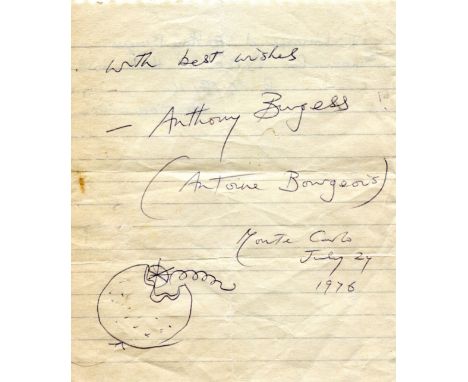 with best wishes
— Anthony Burgess
(Antoine Bourgeois)
Monte Carlo
July 27
1976